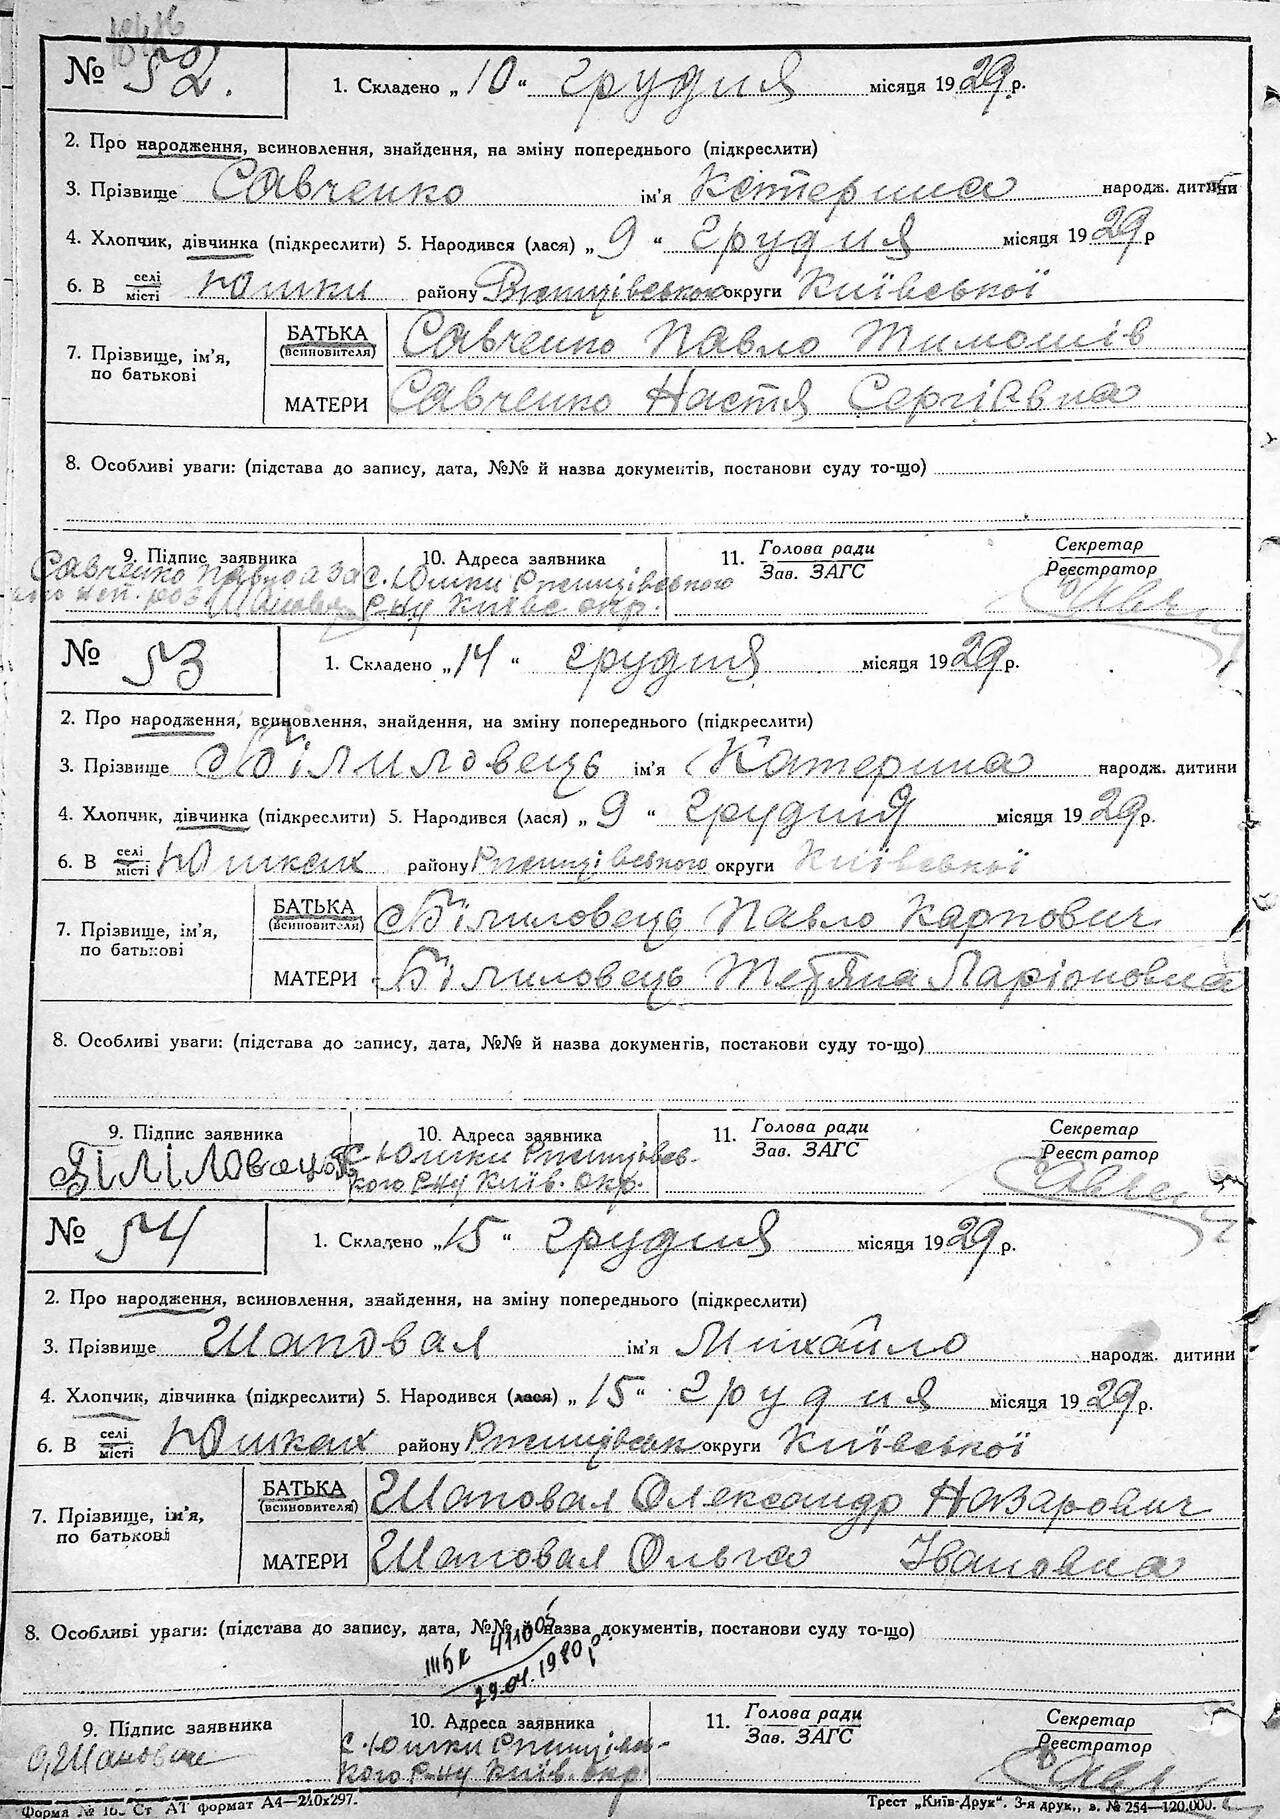 № 52. 1. Складено „10“ грудня місяця 1929 р.
2. Про народження, всиновлення, знайдення, на зміну попереднього (підкреслити)
3. Прізвище Савченко ім'я Катерина народж. дитини
4. Хлопчик, дівчинка (підкреслити) 5. Народився (лася) „9“ грудня місяця 1929 р
6. В селі місті Юшки району Ржищівського округи Київської
7. Прізвище, ім'я, по батькові БАТЬКА (всиновителя) Савченко Павло Тимошів
МАТЕРИ Савченко Настя Сергіївна
8. Особливі уваги: (підстава до запису, дата, №№ й назва документів, постанови суду то-що)
9. Підпис заявника 10. Адреса заявника 11. Голова ради Зав. ЗАГС Секретар Реєстратор
Савченко Павло а за с. Юшки Ржищівського
Р-ну Київс окр.
№ 53 1. Складено „14“ грудня місяця 1929 р.
2. Про народження, всиновлення, знайдення, на зміну попереднього (підкреслити)
3. Прізвище Білиловець ім'я Катерина народж. дитини
4. Хлопчик, дівчинка (підкреслити) 5. Народився (лася) „9“ грудня місяця 1929 р.
6. В селі місті Юшках району Ржищівського округи Київської
7. Прізвище, ім'я, по батькові БАТЬКА (всиновителя) Білиловець Павло Карпович
МАТЕРИ Білиловець Тетяна Ларіоновна
8. Особливі уваги: (підстава до запису, дата, №№ й назва документів, постанови суду то-що)
9. Підпис заявника 10. Адреса заявника 11. Голова ради Зав. ЗАГС Секретар Реєстратор
с. Юшки Ржищівсь-
кого Р-ну Київ. окр.
№ 54 1. Складено „15“ грудня місяця 1929 р.
2. Про народження, всиновлення, знайдення, на зміну попереднього (підкреслити)
3. Прізвище Шаповал ім'я Михайло народж. дитини
4. Хлопчик, дівчинка (підкреслити) 5. Народився (лася) „15“ грудня місяця 1929 р.
6. В селі місті Юшках району Ржищівськ округи Київської
7. Прізвище, ім'я, по батькові БАТЬКА (всиновителя) Шаповал Олександр Назарович
МАТЕРИ Шаповал Ольга Івановна
8. Особливі уваги: (підстава до запису, дата, №№ й назва документів, постанови суду то-що)
ІІІБК 411005
29.04.1980 р.
9. Підпис заявника 10. Адреса заявника 11. Голова ради Зав. ЗАГС Секретар Реєстратор
О, Шаповал с. Юшки Ржищівсь-
кого Р-ну Київ. окр
Форма № 16. Ст АТ формат А4—210х297. Трест „Київ-Друк“. 3-я друк., в. № 254—120.000.